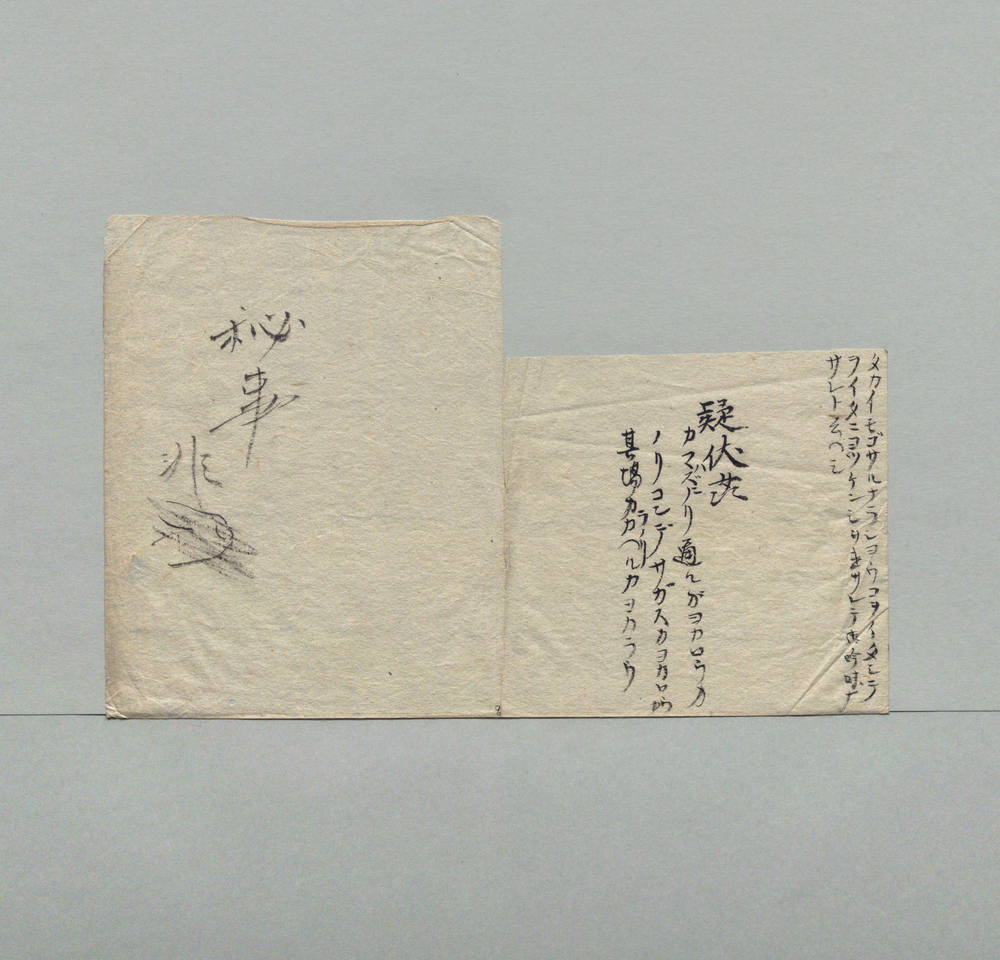 メカイモゴサルナラシヨウコヲイタシテ
ヲイタニヨツケンシ サレテ 吟味ナ
サレト云ヘシ
疑伏
カマズトリ 通ンガヨカロウカ
ノリコンデサガスカヨカロ
其場カラカヘルカヨカラウ
秘
事
非